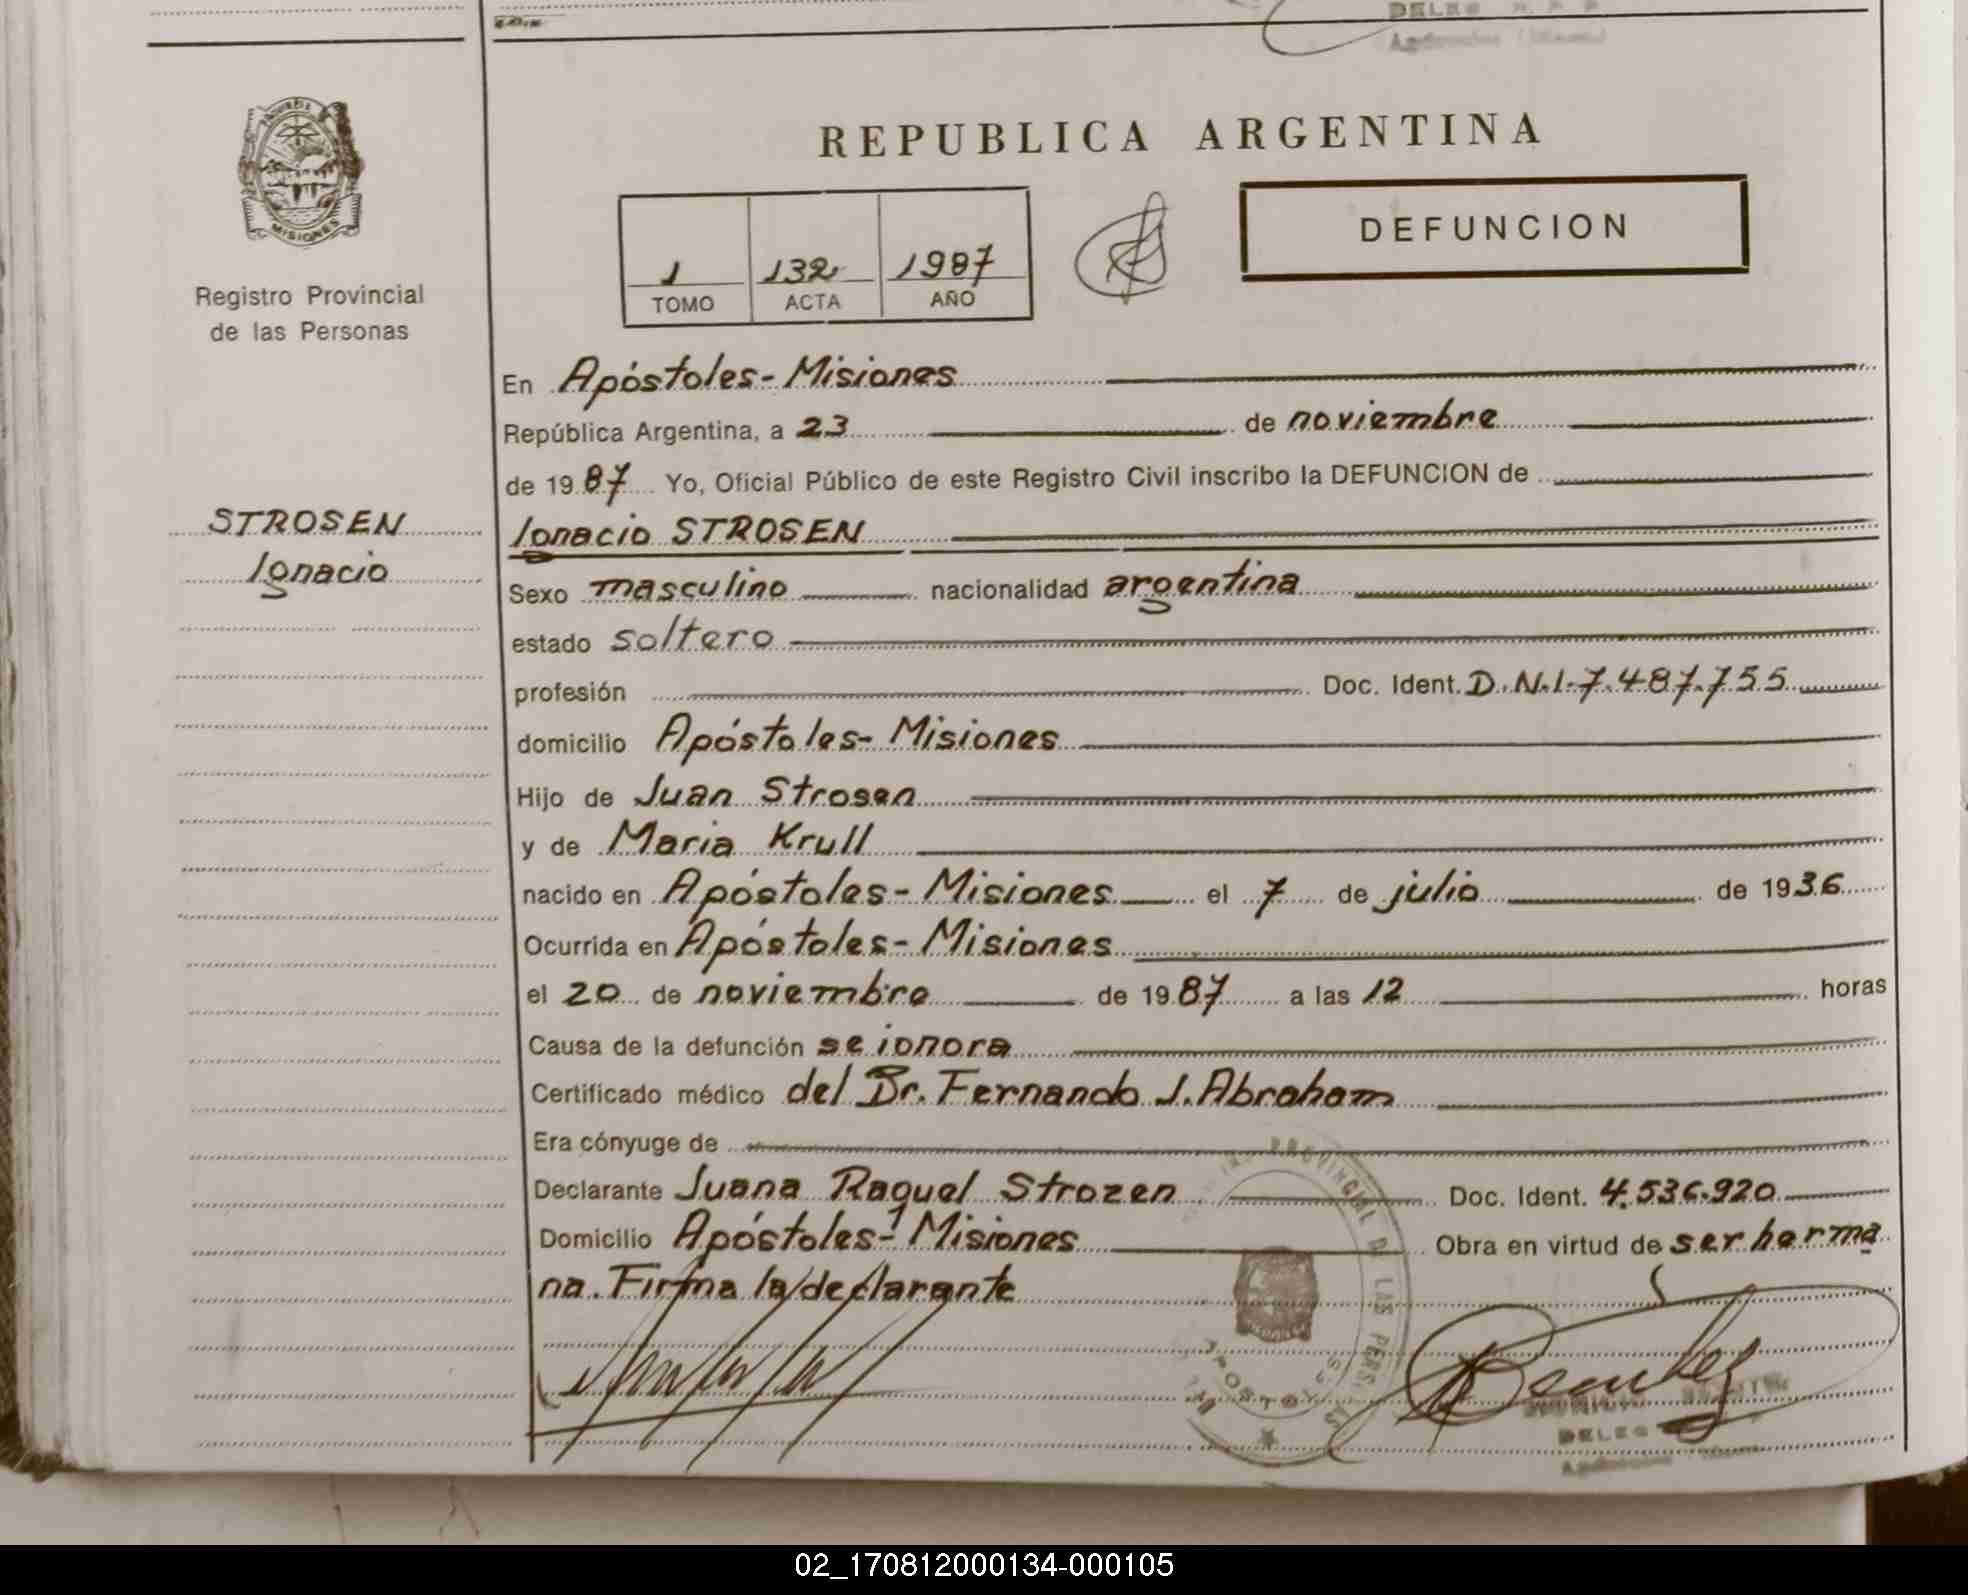 REPUBLICA ARGENTINA
MISIONES
Registro Provincial
de las Personas
1 132 1987
TOMO ACTA AÑO
DEFUNCION
En Apóstoles-Misiones
República Argentina, a 23 de noviembre
de 1987 Yo, Oficial Público de este Registro Civil inscribo la DEFUNCION de
STROSEN
Ignacio
Ignacio STROSEN
Sexo masculino nacionalidad argentina
estado soltero
profesión Doc. Ident. D.N.I-7.487.755
domicilio Apóstoles-Misiones
Hijo de Juan Strosen
y de Maria Krull
nacido en Apóstoles-Misiones el 7 de julio de 1936
Ocurrida en Apóstoles-Misiones
el 20 de noviembre de 1987 a las 12 horas
Causa de la defunción se ignora
Certificado médico del Dr. Fernando J. Abraham
Era cónyuge de
Declarante Juana Raquel Strozen Doc. Ident. 4.536.920
Domicilio Apóstoles-Misiones Obra en virtud de ser herma
na. Firma la declarante
PROVINCIAL DE LAS PERS
APOSTOLES
DELEG
02_170812000134-000105